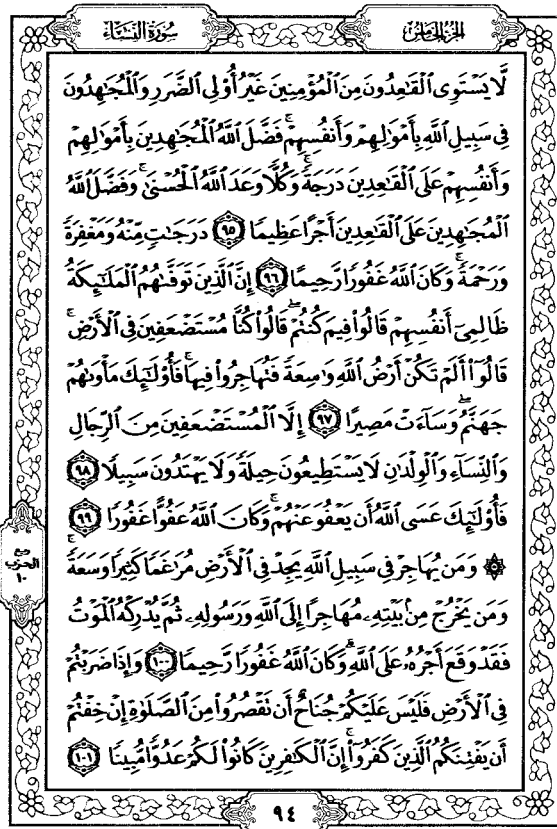 الجزء الخامس
سورة النساء
لَّا يَسْتَوِى الْقَٰعِدُونَ مِنَ الْمُؤْمِنِينَ غَيْرُ أُوْلِى الضَّرَرِ وَالْمُجَٰهِدُونَ
فِى سَبِيلِ اللَّهِ بِأَمْوَٰلِهِمْ وَأَنفُسِهِمْ ۚ فَضَّلَ اللَّهُ الْمُجَٰهِدِينَ بِأَمْوَٰلِهِمْ
وَأَنفُسِهِمْ عَلَى الْقَٰعِدِينَ دَرَجَةً ۚ وَكُلًّا وَعَدَ اللَّهُ الْحُسْنَىٰ ۚ وَفَضَّلَ اللَّهُ
الْمُجَٰهِدِينَ عَلَى الْقَٰعِدِينَ أَجْرًا عَظِيمًا ٩٥ دَرَجَٰتٍ مِّنْهُ وَمَغْفِرَةً
وَرَحْمَةً ۚ وَكَانَ اللَّهُ غَفُورًا رَّحِيمًا ٩٦ إِنَّ الَّذِينَ تَوَفَّىٰهُمُ الْمَلَٰٓئِكَةُ
ظَالِمِىٓ أَنفُسِهِمْ قَالُوا۟ فِيمَ كُنتُمْ ۖ قَالُوا۟ كُنَّا مُسْتَضْعَفِينَ فِى الْأَرْضِ ۚ
قَالُوٓا۟ أَلَمْ تَكُنْ أَرْضُ اللَّهِ وَٰسِعَةً فَتُهَاجِرُوا۟ فِيهَا ۚ فَأُو۟لَٰٓئِكَ مَأْوَىٰهُمْ
جَهَنَّمُ ۖ وَسَآءَتْ مَصِيرًا ٩٧ إِلَّا الْمُسْتَضْعَفِينَ مِنَ الرِّجَالِ
وَالنِّسَآءِ وَالْوِلْدَٰنِ لَا يَسْتَطِيعُونَ حِيلَةً وَلَا يَهْتَدُونَ سَبِيلًا ٩٨
فَأُو۟لَٰٓئِكَ عَسَى اللَّهُ أَن يَعْفُوَ عَنْهُمْ ۚ وَكَانَ اللَّهُ عَفُوًّا غَفُورًا ٩٩
۞ وَمَن يُهَاجِرْ فِى سَبِيلِ اللَّهِ يَجِدْ فِى الْأَرْضِ مُرَٰغَمًا كَثِيرًا وَسَعَةً ۚ
وَمَن يَخْرُجْ مِنۢ بَيْتِهِۦ مُهَاجِرًا إِلَى اللَّهِ وَرَسُولِهِۦ ثُمَّ يُدْرِكْهُ الْمَوْتُ
فَقَدْ وَقَعَ أَجْرُهُۥ عَلَى اللَّهِ ۗ وَكَانَ اللَّهُ غَفُورًا رَّحِيمًا ١٠٠ وَإِذَا ضَرَبْتُمْ
فِى الْأَرْضِ فَلَيْسَ عَلَيْكُمْ جُنَاحٌ أَن تَقْصُرُوا۟ مِنَ الصَّلَوٰةِ إِنْ خِفْتُمْ
أَن يَفْتِنَكُمُ الَّذِينَ كَفَرُوٓا۟ ۚ إِنَّ الْكَٰفِرِينَ كَانُوا۟ لَكُمْ عَدُوًّا مُّبِينًا ١٠١
ربع
الحزب
١٠
٩٤